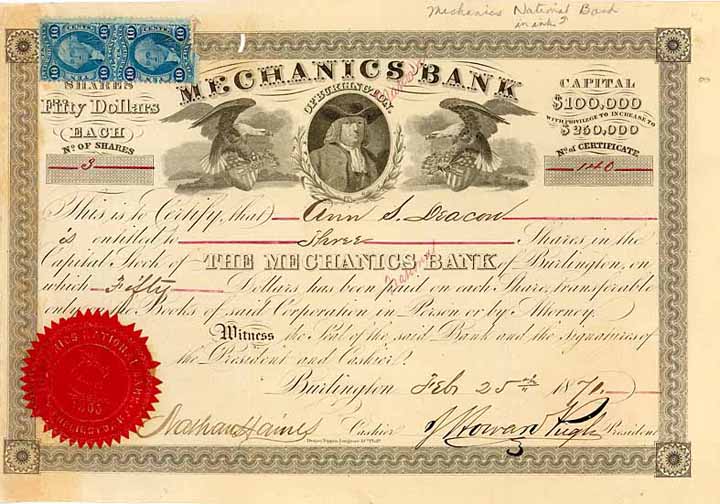 Mechanics National Bank
in ink?
10 CENTS. 10 10 CENTS. 10
10 10 10 10
MECHANICS BANK
National
OF BURLINGTON.
SHARES
Fifty Dollars
EACH
No. OF SHARES
3
CAPITAL
$100,000
WITH PRIVILEGE TO INCREASE TO
$260,000
No. of CERTIFICATE
140
This is to Certify, that Ann S. Deacon
is entitled to Three Shares in the
Capital Stock of THE MECHANICS BANK of Burlington, on
National
which Fifty Dollars has been paid on each Share, transferable
only on the Books of said Corporation in Person or by Attorney.
Witness the Seal of the said Bank and the Signatures of
the President and Cashier.
Burlington Feb 25th 1870.
Nathan Haines Cashier President
NATIONAL BANK